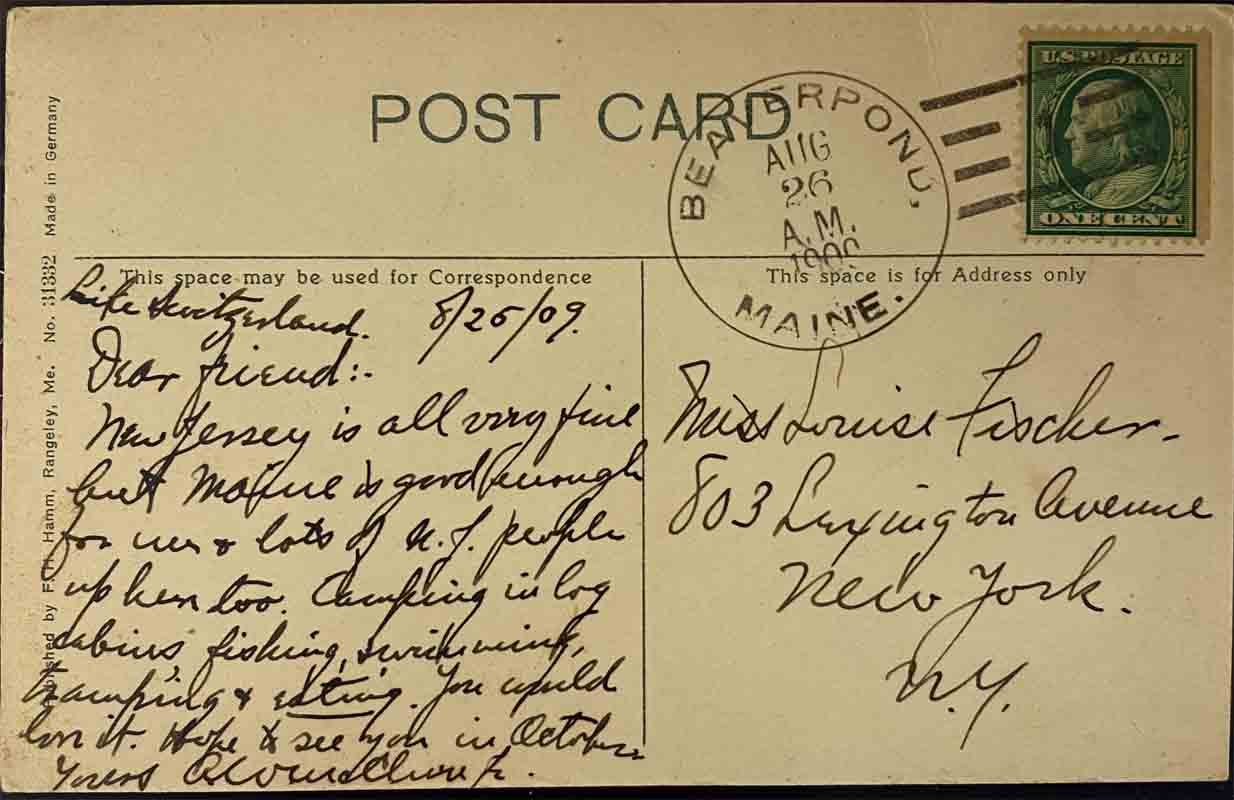 POST CARD
BEAVERPOND,
AUG
26
A.M.
MAINE.
U.S. POSTAGE
ONE CENT
This space may be used for Correspondence
This space is for Address only
Published by F. H. Hamm, Rangeley, Me. No. 31332 Made in Germany
Like Switzerland. 8/25/09.
Dear friend:-
New Jersey is all very fine
but Maine is good enough
for me & lots of N.J. people
up here too. Camping in log
cabins, fishing, swimming,
tramping & eating. You would
love it. Hope to see you in October
Yours
Miss Louise Fischer.
803 Lexington Avenue
New York.
N.Y.